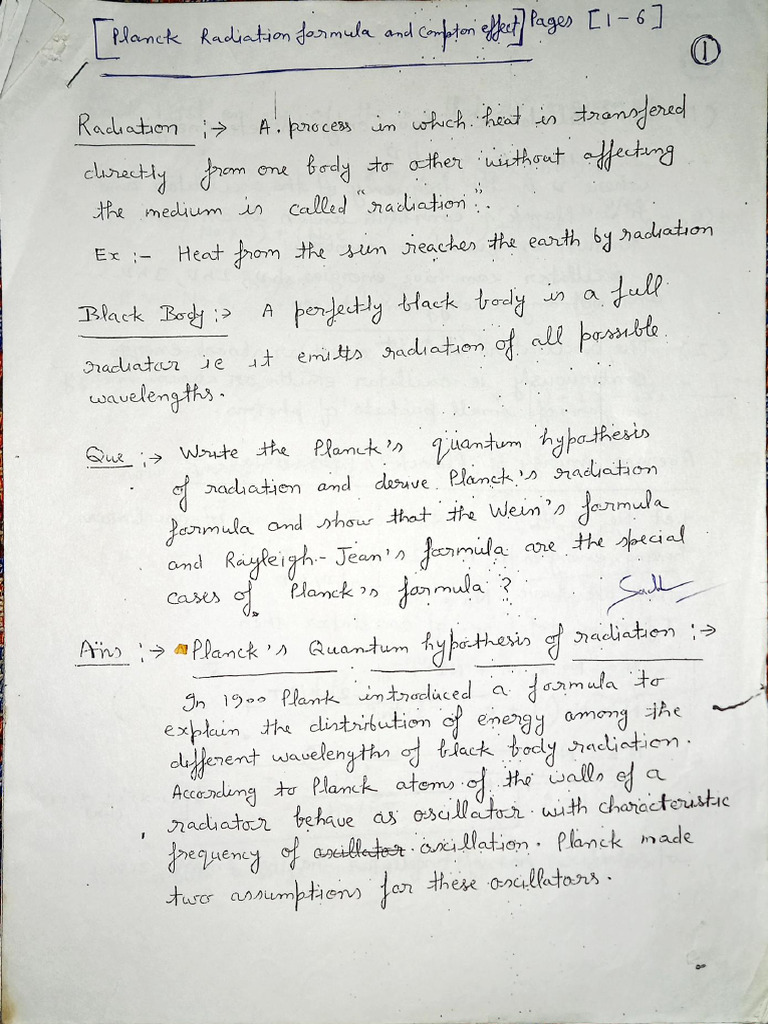 [Planck Radiation formula and Compton effect] Pages [1-6]
1
Radiation :→ A process in which heat is transfered
directly from one body to other without affecting
the medium is called "radiation".
Ex :- Heat from the sun reaches the earth by radiation
Black Body :→ A perfectly black body is a full
radiator ie it emitts radiation of all possible
wavelengths.
Que :→ Write the Planck's quantum hypothesis
of radiation and derive Planck's radiation
formula and show that the Wein's formula
and Rayleigh-Jean's formula are the special
cases of Planck's formula ?
Ans :→ Planck's Quantum hypothesis of radiation :→
In 1900 Plank introduced a formula to
explain the distribution of energy among the
different wavelengths of black body radiation.
According to Planck atoms of the walls of a
radiator behave as oscillator with characteristic
frequency of oscillator oscillation. Planck made
two assumptions for these oscillators.